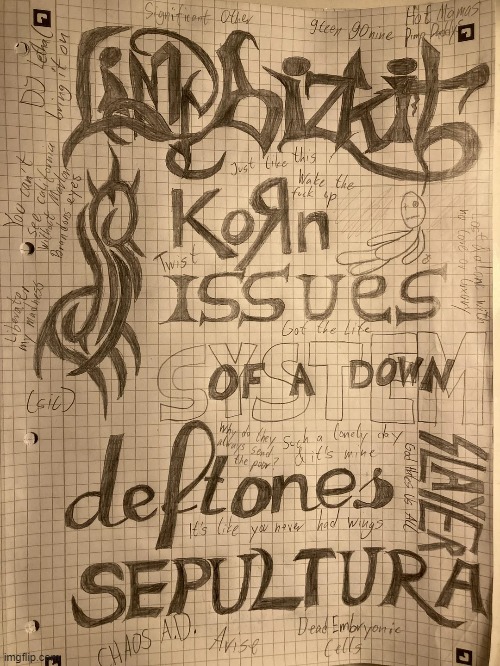 Significant Other
Hot Mamas
Pimp Daddys
DJ Lethal
bring it on
Limp Bizkit
Just like this
Wake the
fuck up
KoЯn
Twist
You can't
see california
without Marlon
Brandons eyes
ISSUES
Liberate
my madness
Got the Life
SYSTEM
OF A DOWN
(sic)
Why do they
always send
the poor?
Such a lonely day
& it's mine
deftones
SLAYER
God Hates Us All
It's like you never had wings
SEPULTURA
CHAOS A.D.
Arise
Dead Embryonic
Cells
imgflip.com